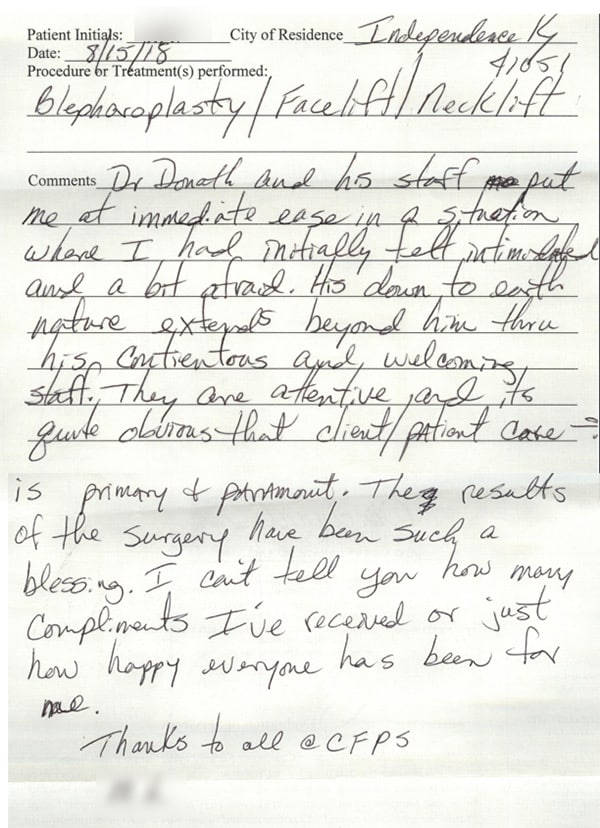 Patient Initials: City of Residence Independence Ky
Date: 8/15/18 41051
Procedure or Treatment(s) performed:
Blepharoplasty/Facelift/Necklift
Comments Dr Donath and his staff put
me at immediate ease in a situation
where I had initially felt intimidated
and a bit afraid. His down to earth
nature extends beyond him thru
his contientous and welcoming
staff. They are attentive and its
quite obvious that client/patient care -
is primary & paramount. The results
of the surgery have been such a
blessing. I can't tell you how many
compliments I've received or just
how happy everyone has been for
me.
Thanks to all @ CFPS